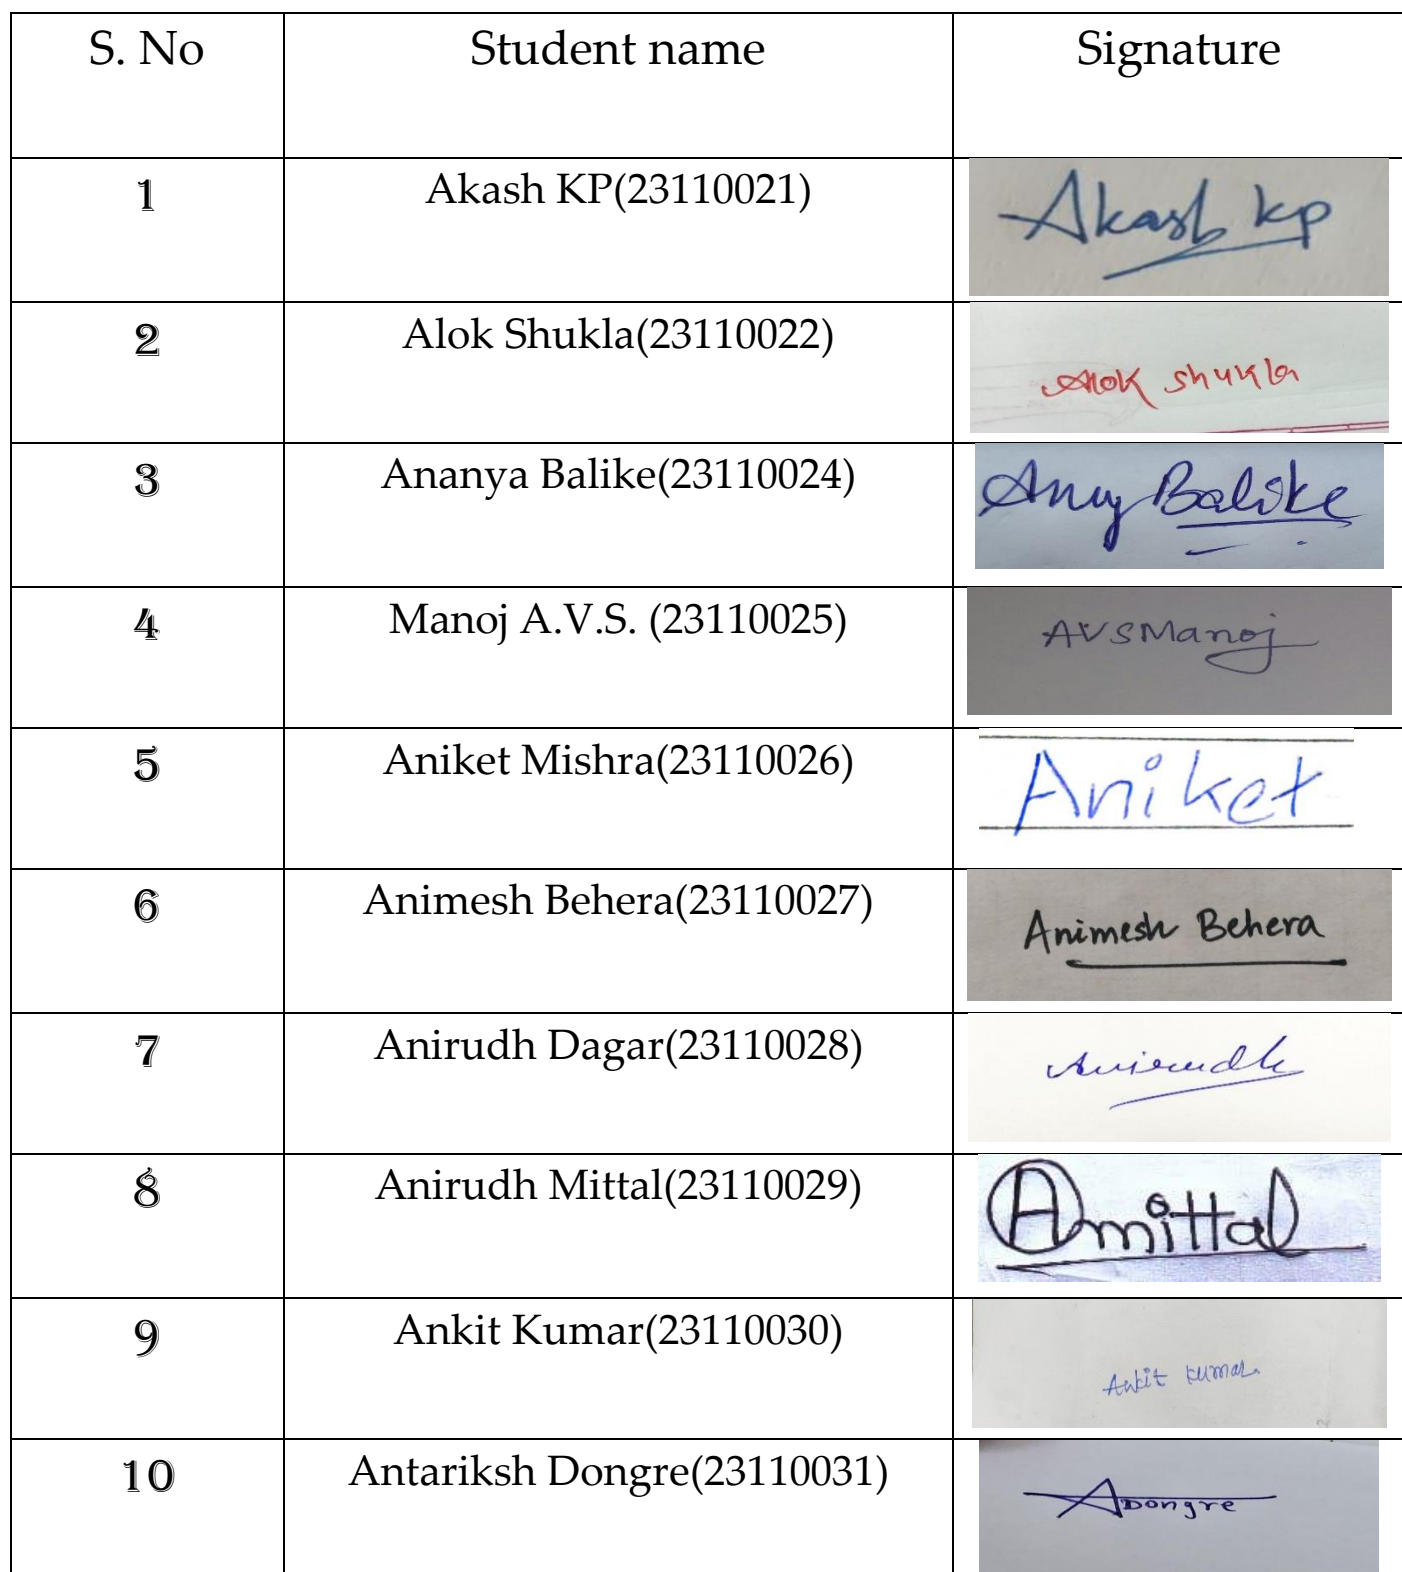 S. No Student name Signature
1 Akash KP(23110021) Akash kp
2 Alok Shukla(23110022) Alok Shukla
3 Ananya Balike(23110024) Anuy Balike
4 Manoj A.V.S. (23110025) AVSManoj
5 Aniket Mishra(23110026) Aniket
6 Animesh Behera(23110027) Animesh Behera
7 Anirudh Dagar(23110028) Anirudh
8 Anirudh Mittal(23110029) Amittal
9 Ankit Kumar(23110030) Ankit kumar
10 Antariksh Dongre(23110031) ADongre